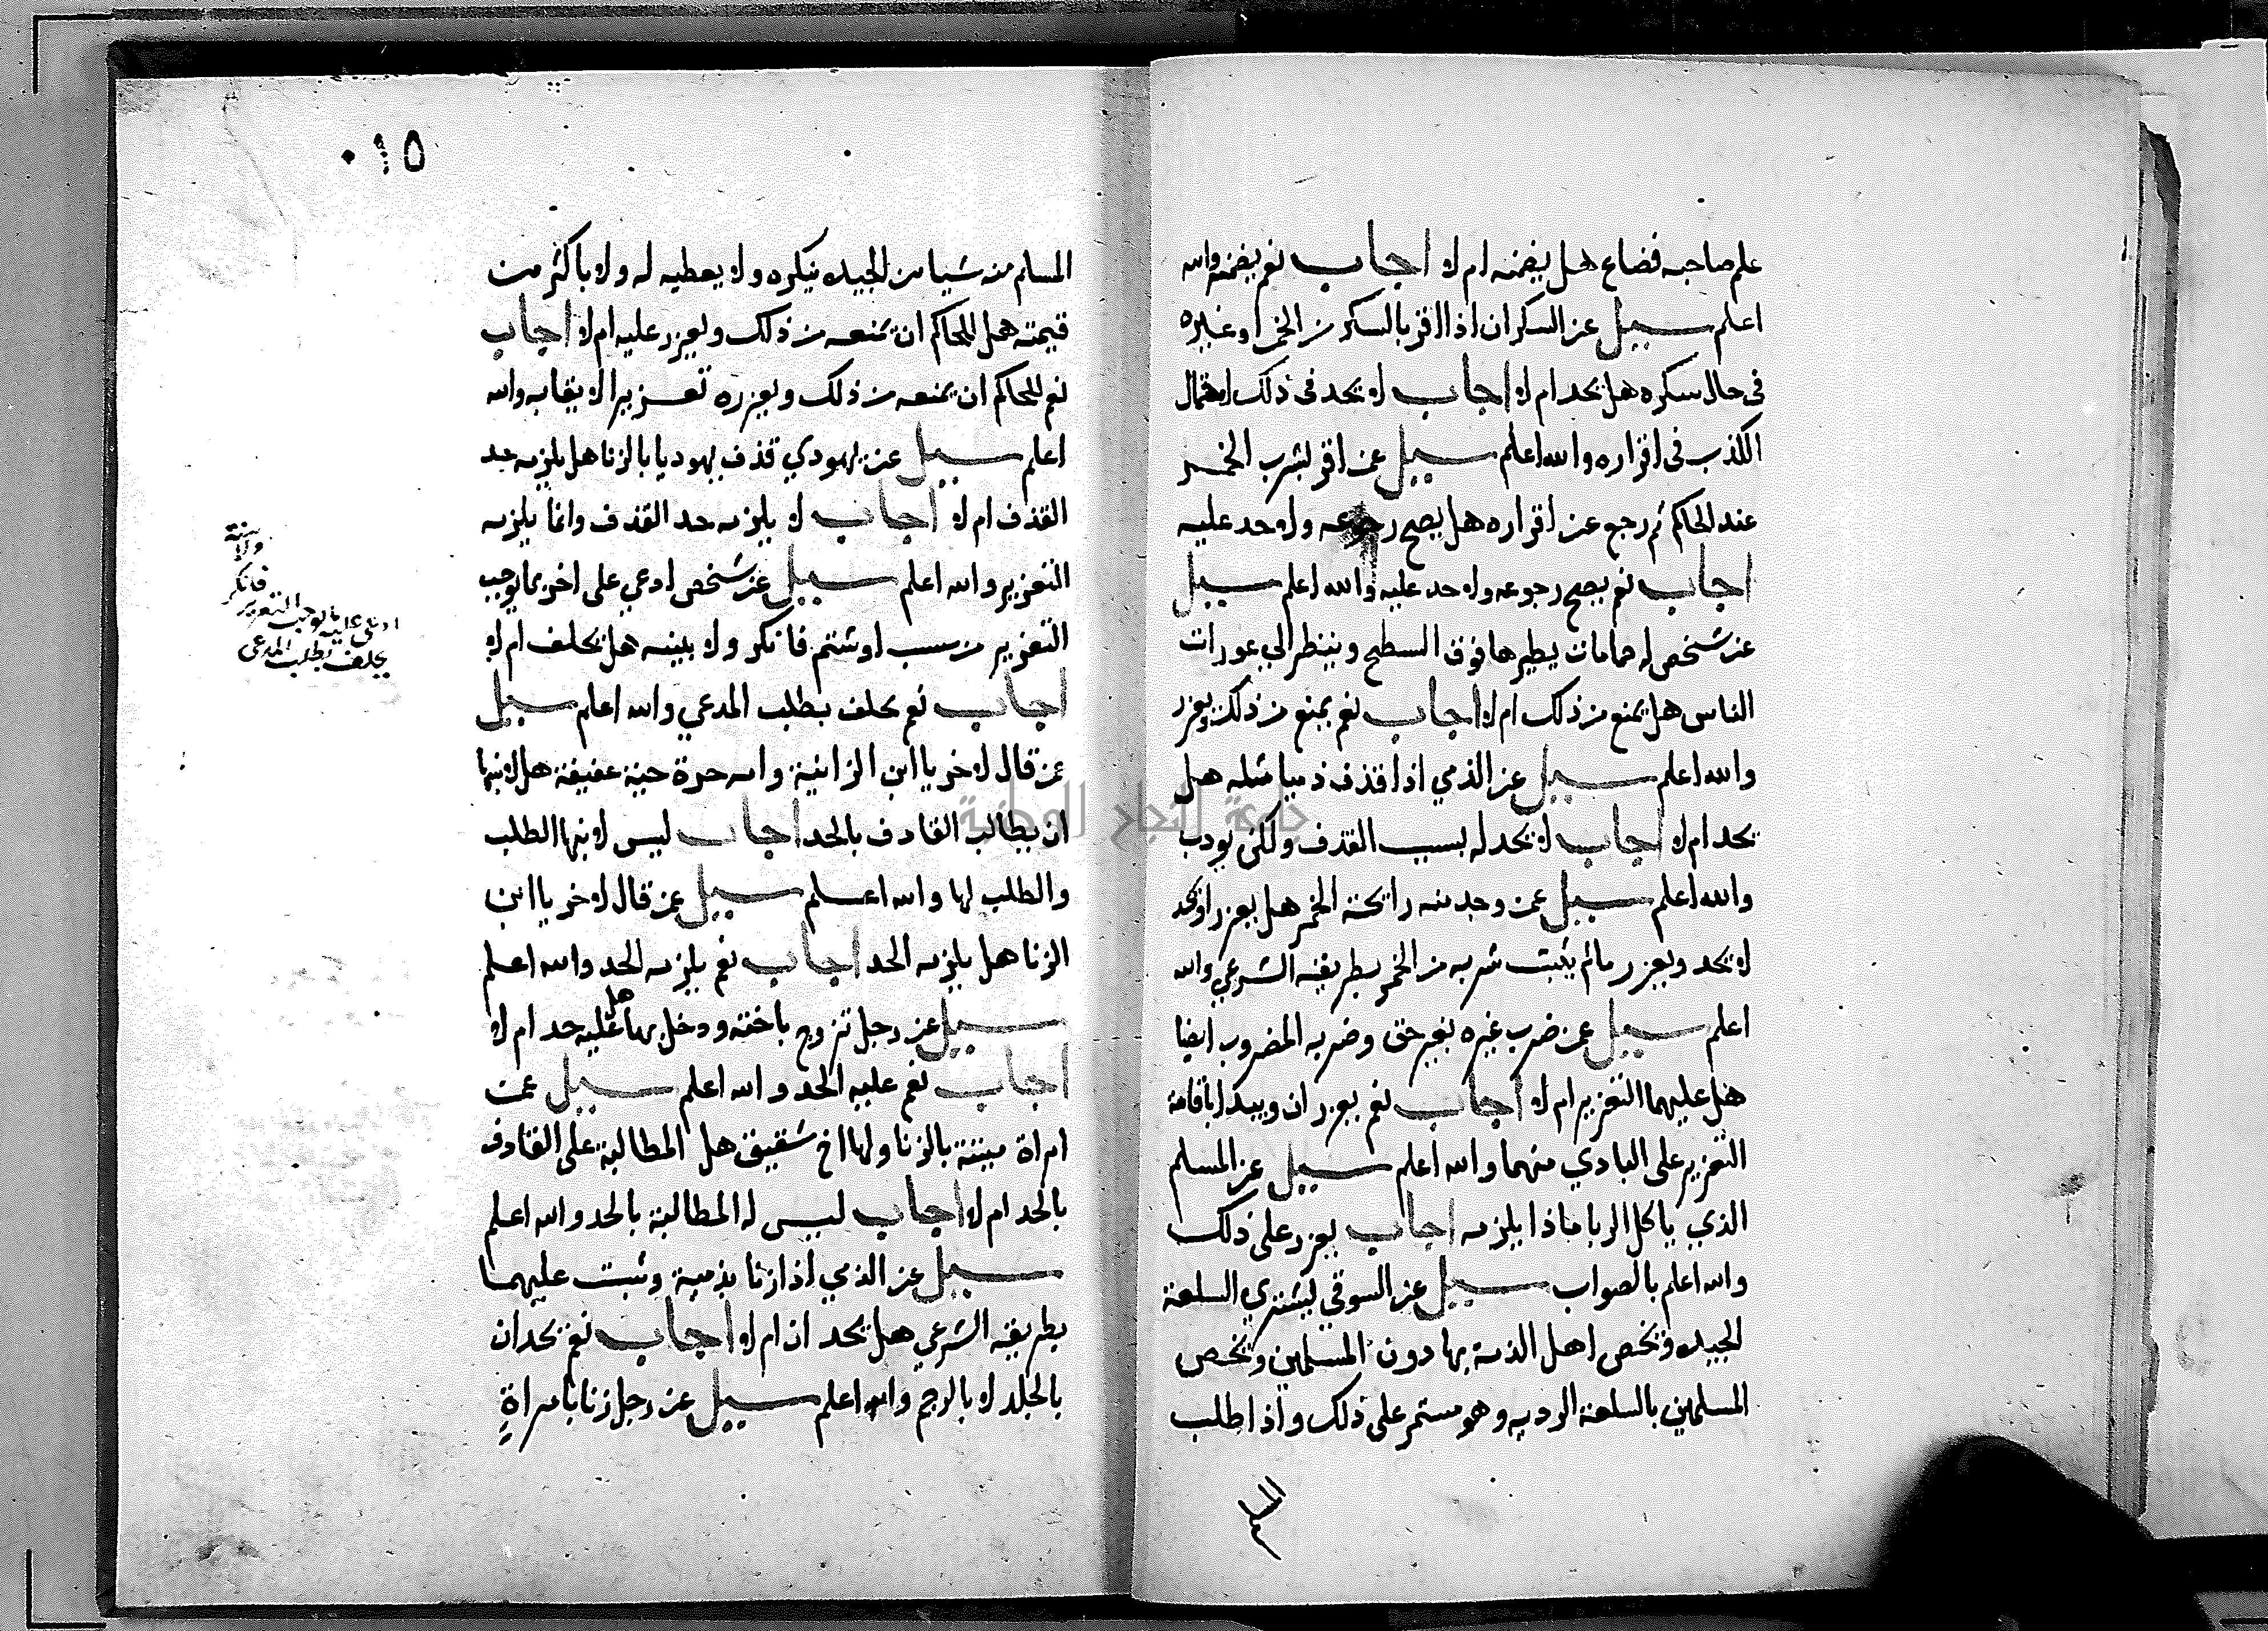 علم صاحبه فضاع هل يضمنه ام لا اجاب نعم يضمنه والله
اعلم سيل عن السكران اذا اقر بالسكر من الخمر او غيره
في حال سكره هل يحد ام لا اجاب لا يحد في ذلك لاحتمال
الكذب في اقراره والله اعلم سيل عمن اقر بشرب الخمر
عند الحاكم ثم رجع عن اقراره هل يصح رجوعه ولا حد عليه
اجاب نعم يصح رجوعه ولا حد عليه والله اعلم سيل
عن شخص له حمامات يطيرها فوق السطح وينظر الي عورات
الناس هل يمنع من ذلك ام لا اجاب نعم يمنع من ذلك ويعزر
والله اعلم سيل عن الذمي اذا قذف ذميا مثله هل
يحد ام لا اجاب لا يحد له بسبب القذف ولكن يودب
والله اعلم سيل عمن وجد منه رايحة الخمر هل يعزر او يحد
لا يحد ويعزر مالم يثبت شربه من الخمر بطريقه الشرعي والله
اعلم سيل عمن ضرب غيره بغير حق وضربه المضروب ايضا
هل عليهما التعزير ام لا اجاب نعم يعزران ويبدا باقامة
التعزير على البادي منهما والله اعلم سيل عن المسلم
الذي ياكل الربا ماذا يلزمه اجاب يعزر على ذلك
والله اعلم بالصواب سيل عن السوقي يشتري السلعة
الجيده ويخص اهل الذمة بها دون المسلمين ويخص
المسلمين بالسلعة الرديه وهو مستمر على ذلك واذا طلب
المسلم
٠١٥
المسلم منه شيا من الجيده ينكره ولا يعطيه له ولا باكثر من
قيمته هل للحاكم ان يمنعه من ذلك ويعزر عليه ام لا اجاب
نعم للحاكم ان يمنعه من ذلك ويعزره تعزيرا لايقابه والله
اعلم سيل عن يهودي قذف يهوديا بالزنا هل يلزمه حد
القذف ام لا اجاب لا يلزمه حد القذف وانما يلزمه
التعزير والله اعلم سيل عن شخص ادعي على اخر بما يوجب
التعزير من سب او شتم فانكر ولا بينه هل يحلف ام لا
اجاب نعم يحلف بطلب المدعي والله اعلم سيل
عمن قال لاخر يا ابن الزانية وامه حرة حية عفيفة هل لابنها
ان يطالب القاذف بالحد اجاب ليس لابنها الطلب
والطلب لها والله اعلم سيل عمن قال لاخر يا ابن
الزنا هل يلزمه الحد اجاب نعم يلزمه الحد والله اعلم
سيل عن رجل تزوج باخته ودخل بها هل عليه حد ام لا
اجاب نعم عليه الحد والله اعلم سيل عمن
امراة ميتة بالزنا ولها اخ شقيق هل المطالبة على القاذف
بالحد ام لا اجاب ليس له المطالبة بالحد والله اعلم
سيل عن الذمي اذا زنا بذمية وثبت عليهما
بطريقه الشرعي هل يحدان ام لا اجاب نعم يحدان
بالجلد لا بالرجم والله اعلم سيل عن رجل زنا بامراة
ولا بينة
فانكر
ادعي عليه بما يوجب التعزير
يحلف بطلب المدعي
جامعة النجاح الوطنية